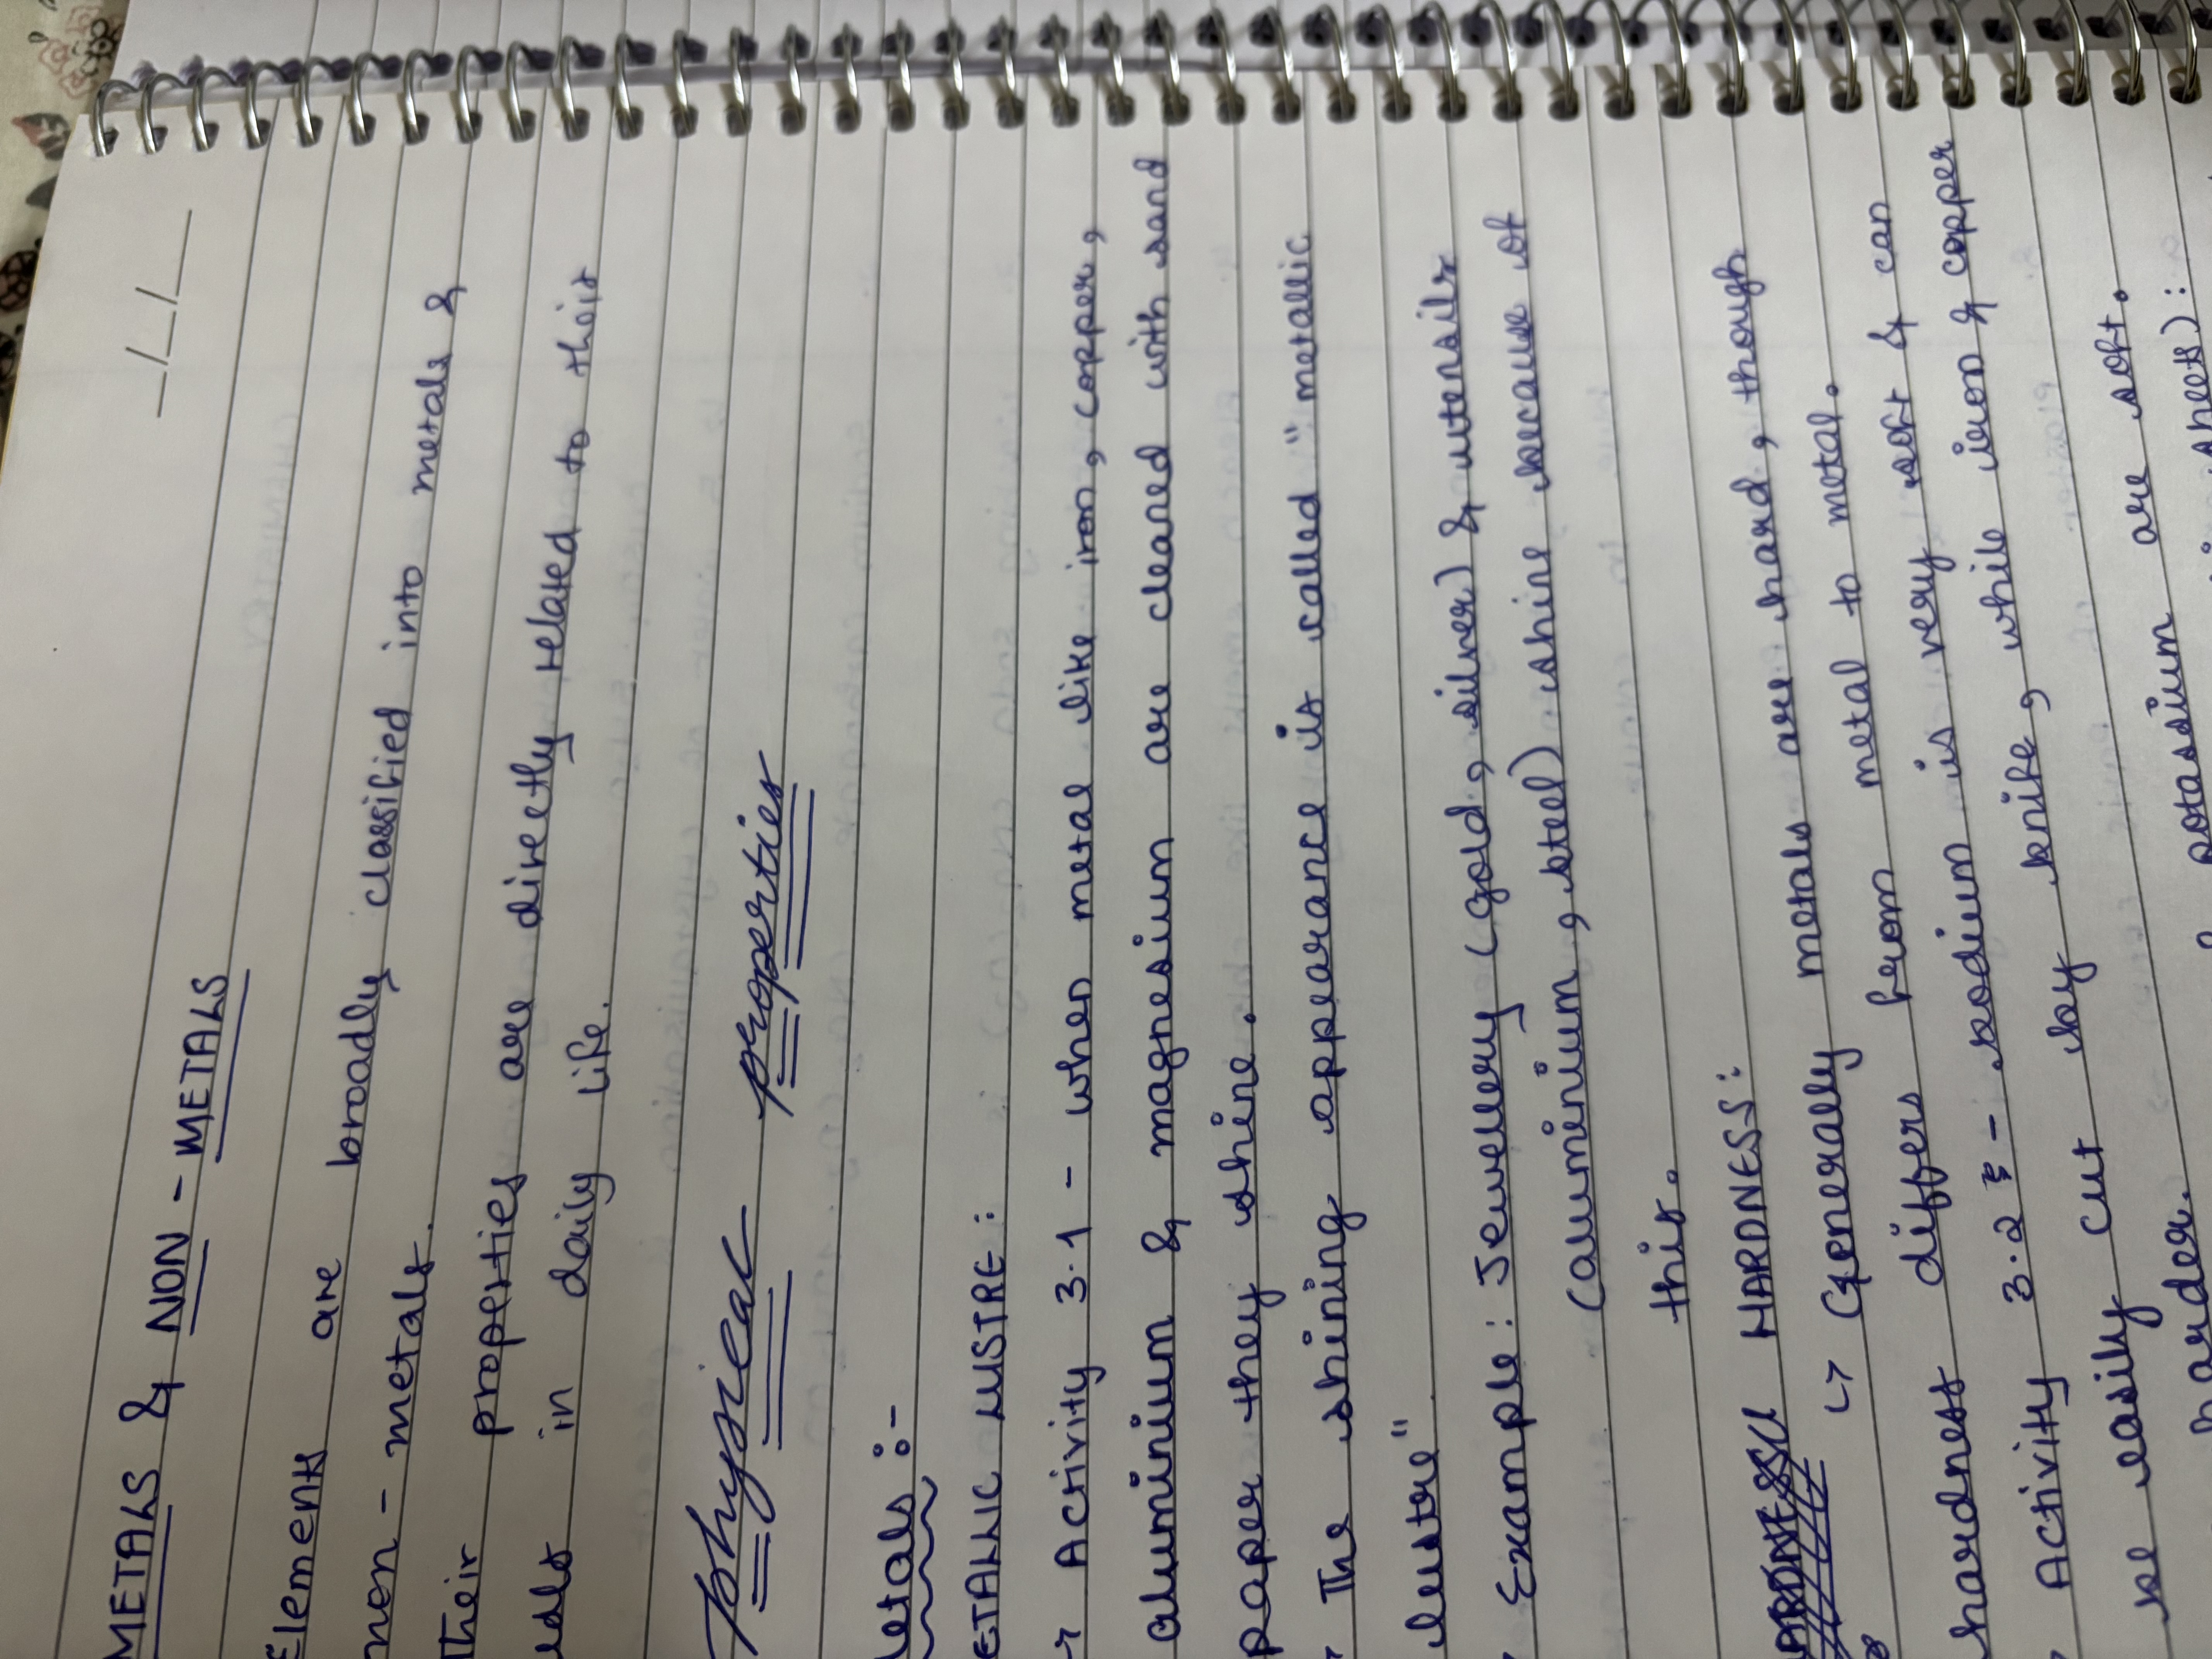 __/__/__
METALS & NON - METALS
Elements are broadly classified into metals &
non - metals.
Their properties are directly related to their
in daily life.
physical properties
etals :-
ETALLIC LUSTRE :
Activity 3.1 - when metal like iron, copper,
aluminium & magnesium are cleaned with sand
paper they shine.
The shining appearance is called " metallic
lustre"
Example : Jewellery (gold, silver) & utensils
(auminium, steel) shine because of
this.
HARDNESS :
↳ Generally metals are hard, though
hardness differs from metal to metal.
Activity 3.2 :- sodium is very soft & can
be easily cut by knife, while iron & copper
harder.
& potassium are soft.
sheets) :